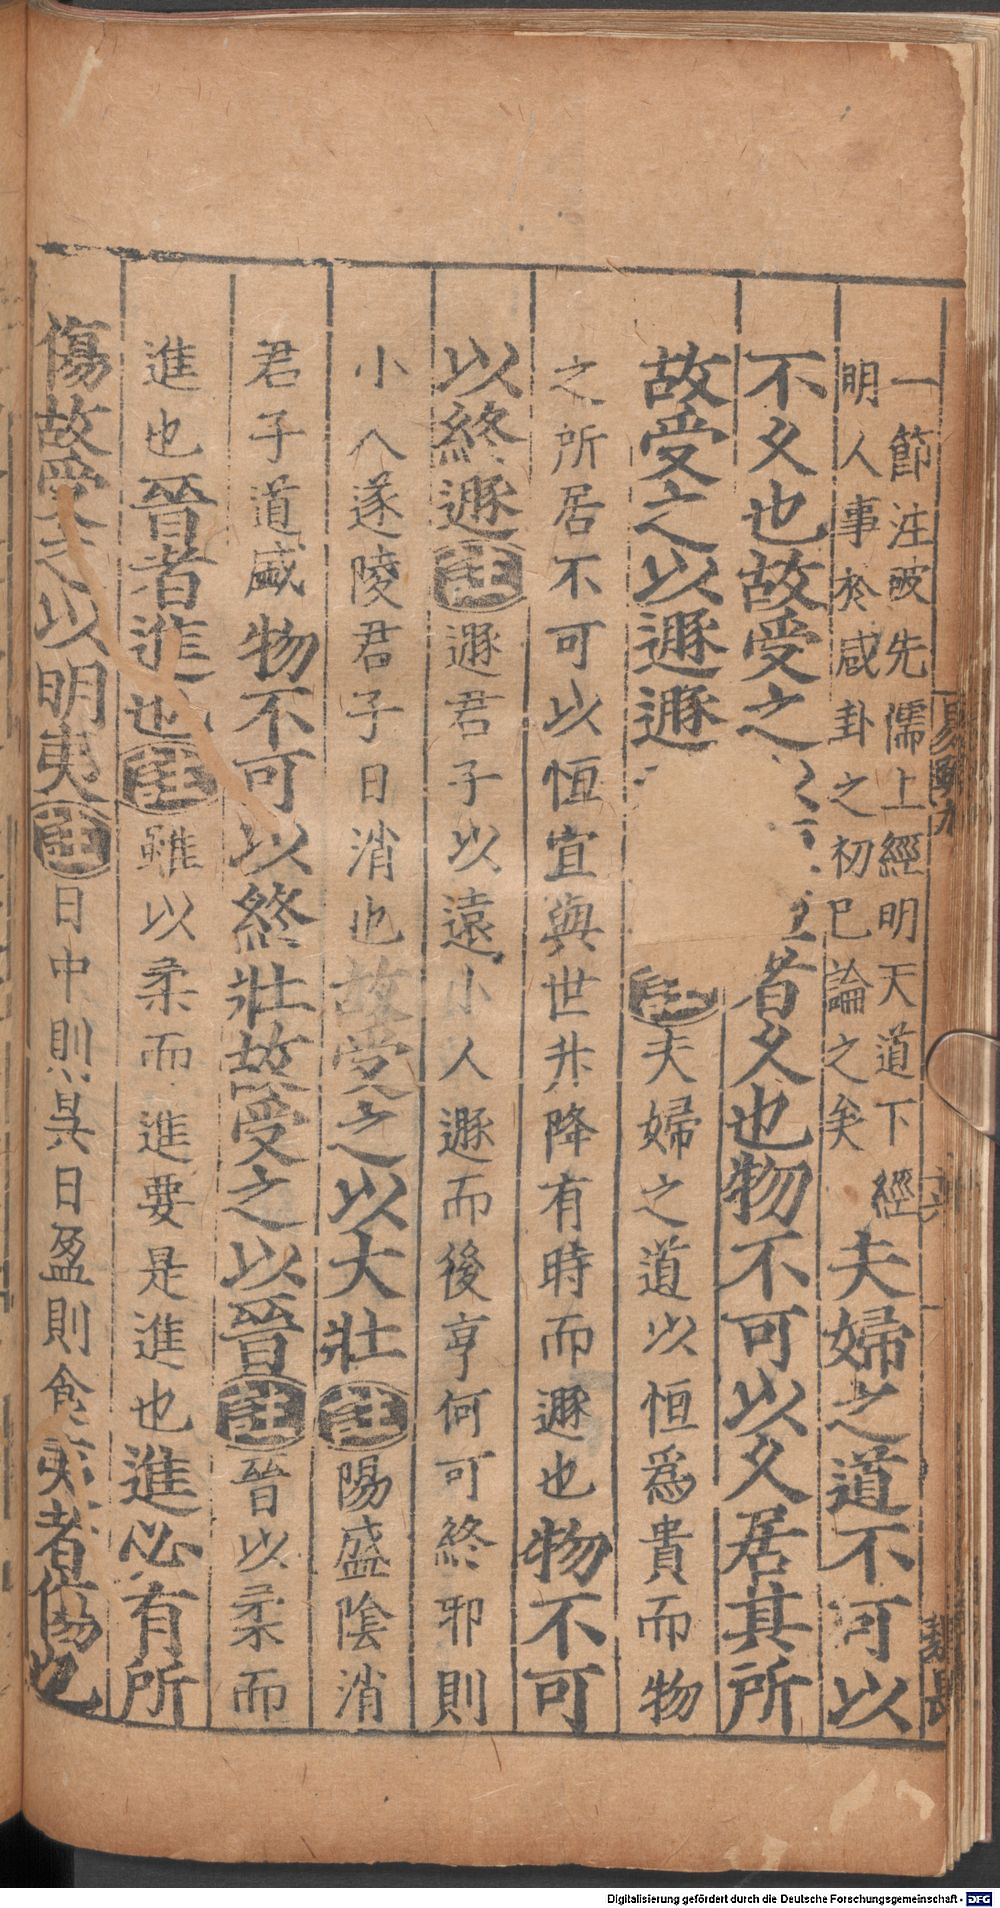 一節注破先儒上經明天道下經
明人事於咸卦之初巳論之矣
夫婦之道不可以
不久也故受之 者久也物不可以久居其所
故受之以遯遯 註夫婦之道以恒爲貴而物
之所居不可以恒宜與世升降有時而遯也物不可
以終遯註遯君子以遠小人遯而後亨何可終邪則
小人遂陵君子日消也故受之以大壯註陽盛陰消
君子道盛物不可以終壯故受之以晉註晉以柔而
進也晉者進也註雖以柔而進要是進也進必有所
傷故受之以明夷註日中則昃日盈則食夷者傷也
Digitalisierung gefördert durch die Deutsche Forschungsgemeinschaft - DFG